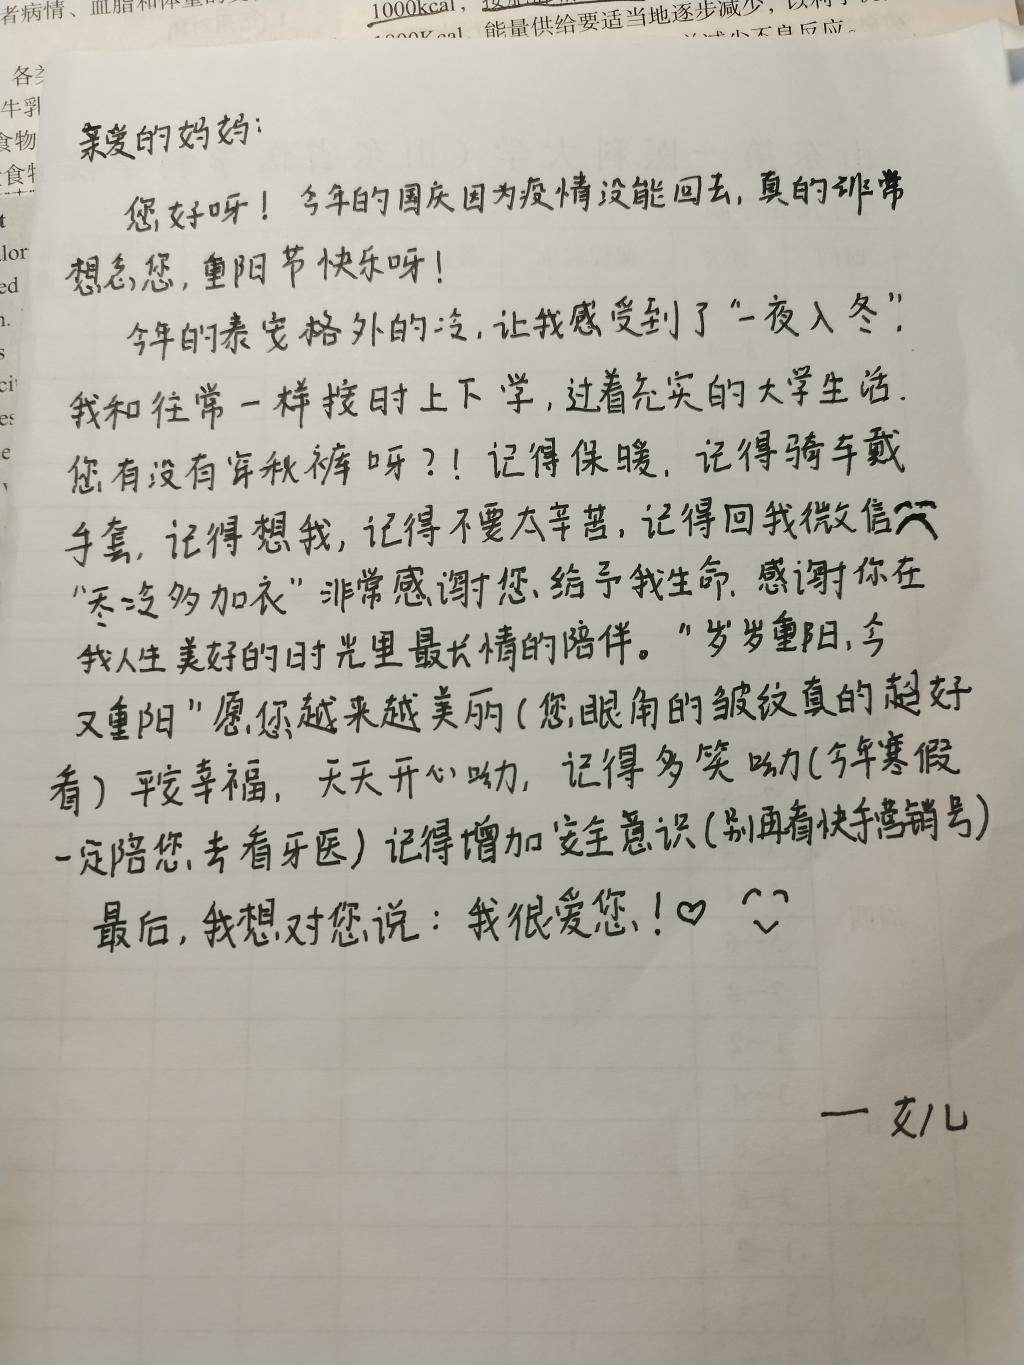 者病情、血脂和体重的
1000kcal，
能量供给要适当地逐步减少，以利
减少不良反应。
各类
牛乳
食物
食物
亲爱的妈妈：
您好呀！今年的国庆因为疫情没能回去，真的非常
想念您，重阳节快乐呀！
今年的泰安格外的冷，让我感受到了“一夜入冬”，
我和往常一样按时上下学，过着充实的大学生活．
您有没有穿秋裤呀？！记得保暖，记得骑车戴
手套，记得想我，记得不要太辛苦，记得回我微信
“寒冷多加衣”非常感谢您给予我生命，感谢你在
我人生美好的时光里最长情的陪伴。“岁岁重阳，今
又重阳”愿您越来越美丽（您眼角的皱纹真的超好
看）平安幸福，天天开心呦，记得多笑呦（今年寒假
一定陪您去看牙医）记得增加安全意识（别再看快手营销号）
最后，我想对您说：我很爱您！♡
一 女儿